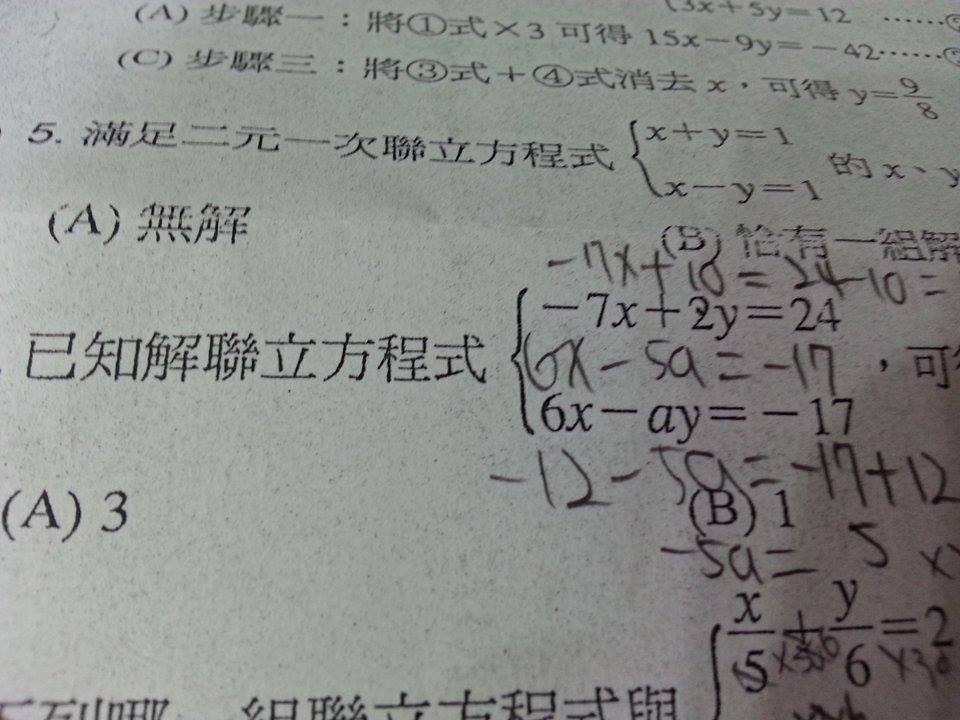 (3x+5y=12 ……
(A) 步驟一：將①式×3 可得 15x－9y=－42……
(C) 步驟三：將③式＋④式消去 x，可得 y=9/8
5. 滿足二元一次聯立方程式 { x＋y＝1 的 x、y
x－y＝1
(A) 無解
(B) 恰有一組解
-7x+10=24-10=
已知解聯立方程式 { －7x＋2y＝24
6x-5a=-17 ，可
6x－ay＝－17
-12-5a=-17+12
(A) 3
(B) 1
-5a= 5
x/5＋y/6＝2
組聯立方程式與